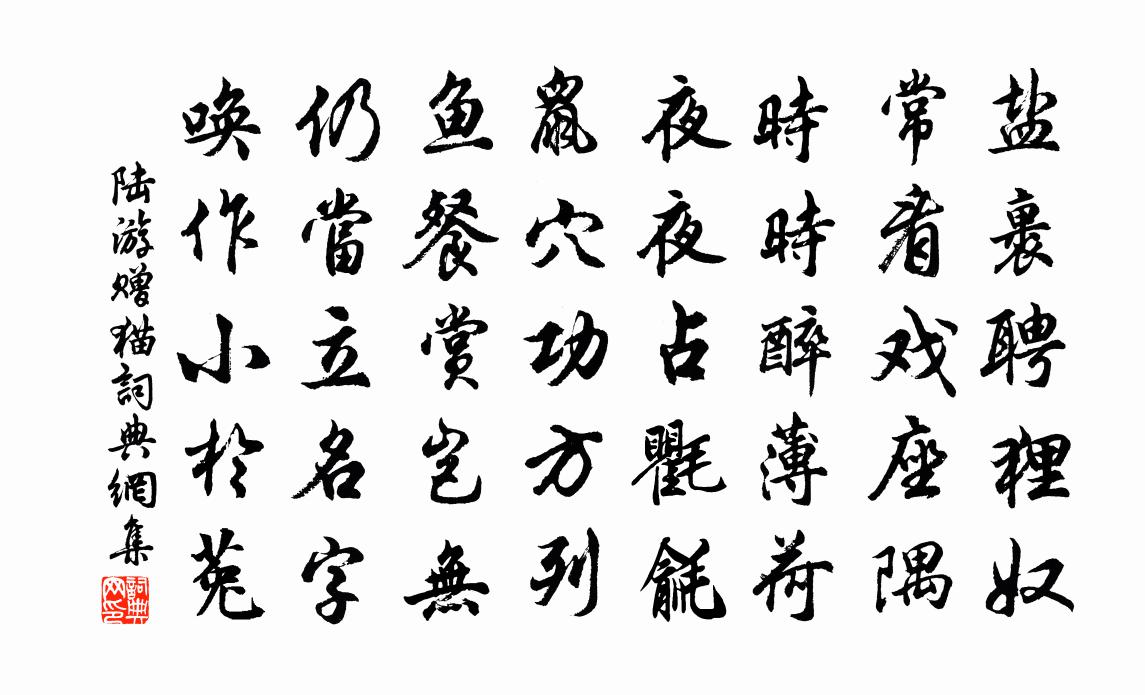 盐裹聘狸奴
常看戏座隅
時時醉薄荷
夜夜占氍毹
鼠穴功方列
魚餐賞岂無
仍當立名字
唤作小於菟
陆游赠猫詞典網集
詞典网印